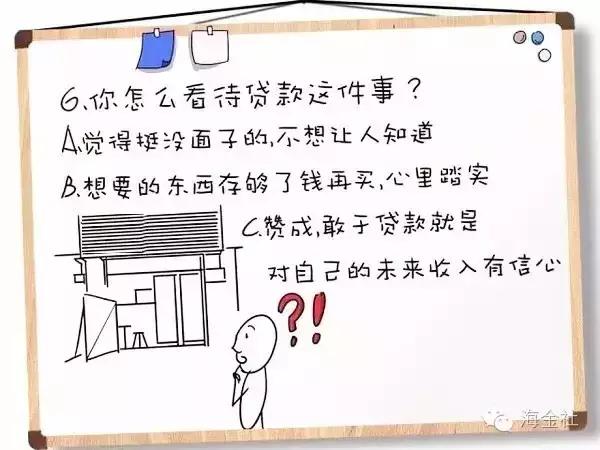 6.你怎么看待贷款这件事？
A.觉得挺没面子的,不想让人知道
B.想要的东西存够了钱再买,心里踏实
C.赞成,敢于贷款就是
对自己的未来收入有信心
?!
海金社